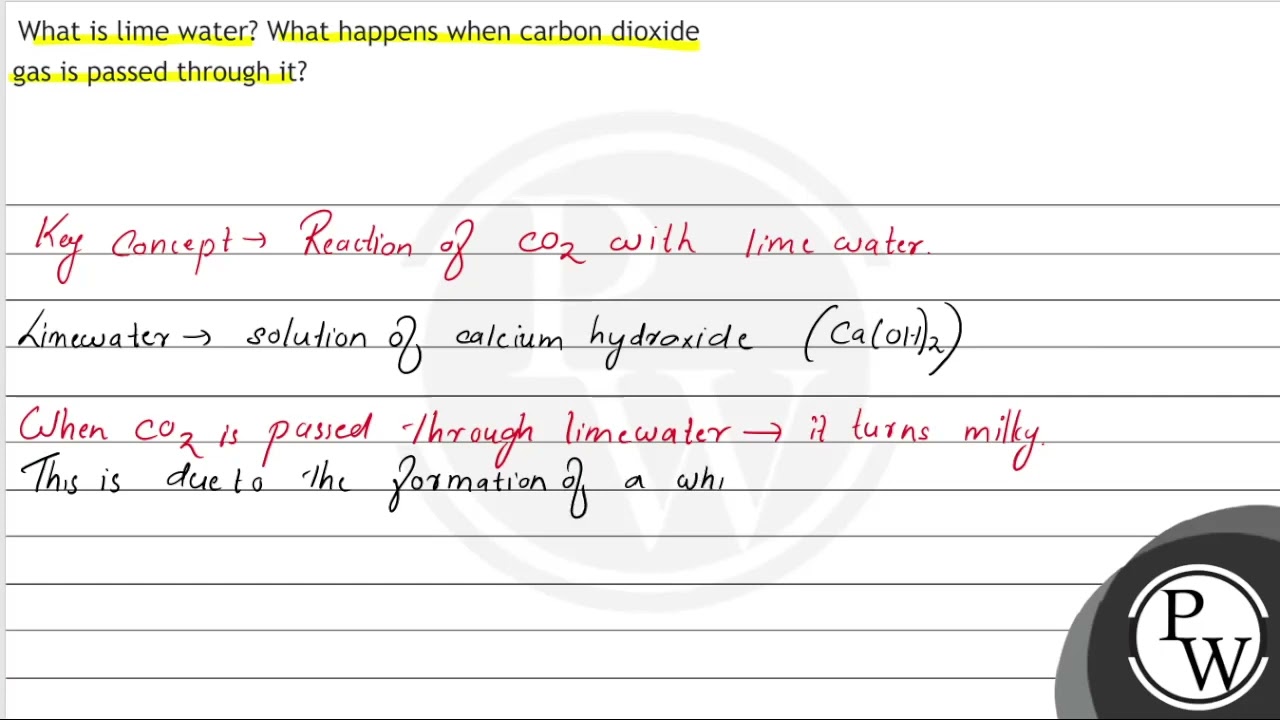 What is lime water? What happens when carbon dioxide
gas is passed through it?
Key Concept → Reaction of CO2 with lime water.
Limewater → solution of calcium hydroxide (Ca(OH)2)
When CO2 is passed through limewater → it turns milky.
This is due to the formation of a whi
P
W
P
W